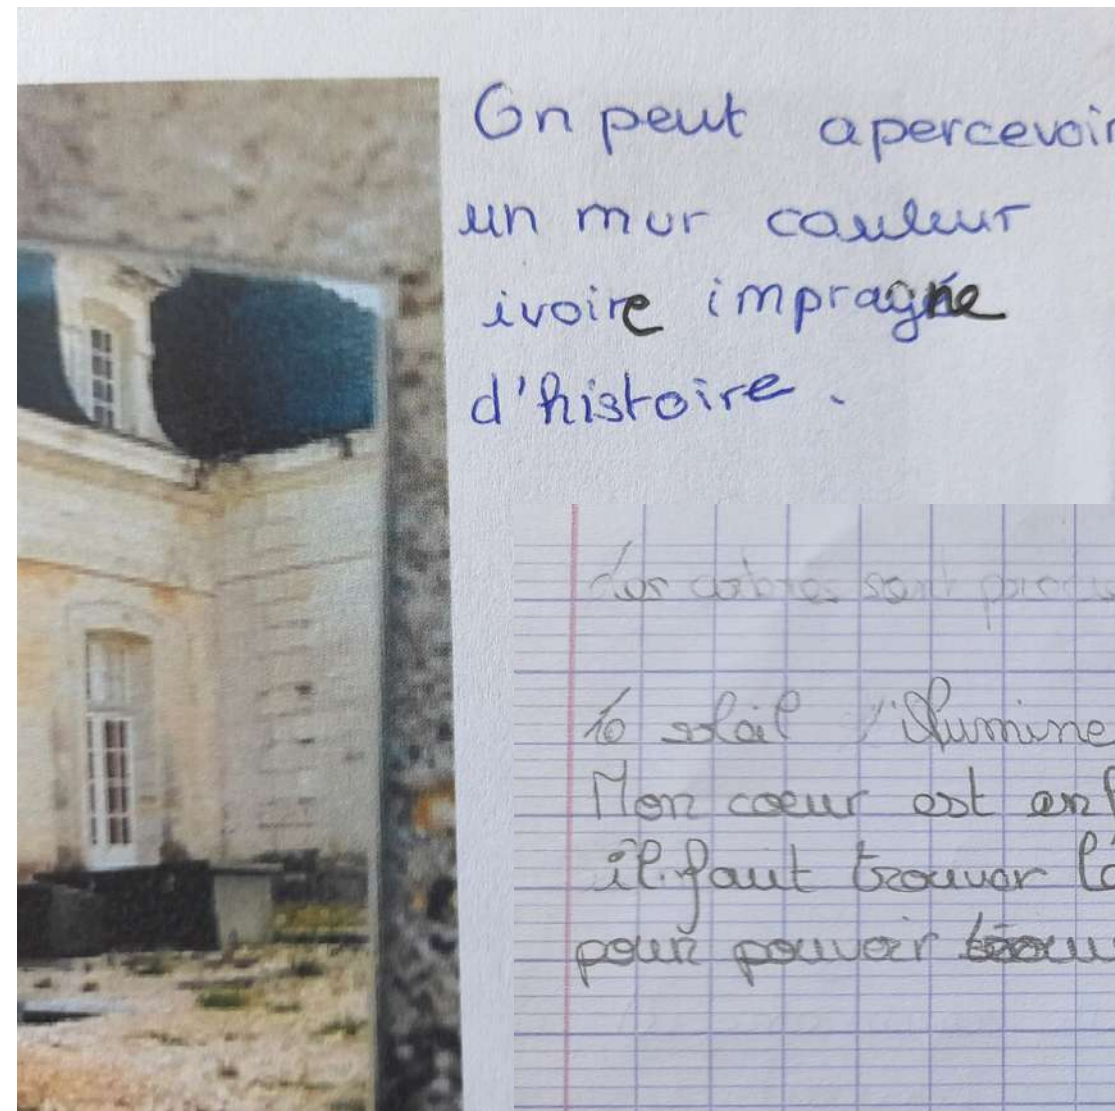 On peut apercevoir
un mur couleur
ivoire impragne
d'histoire.
sont
le soleil l'illumine
Mon coeur est
il faut trouver
pour pouvoir